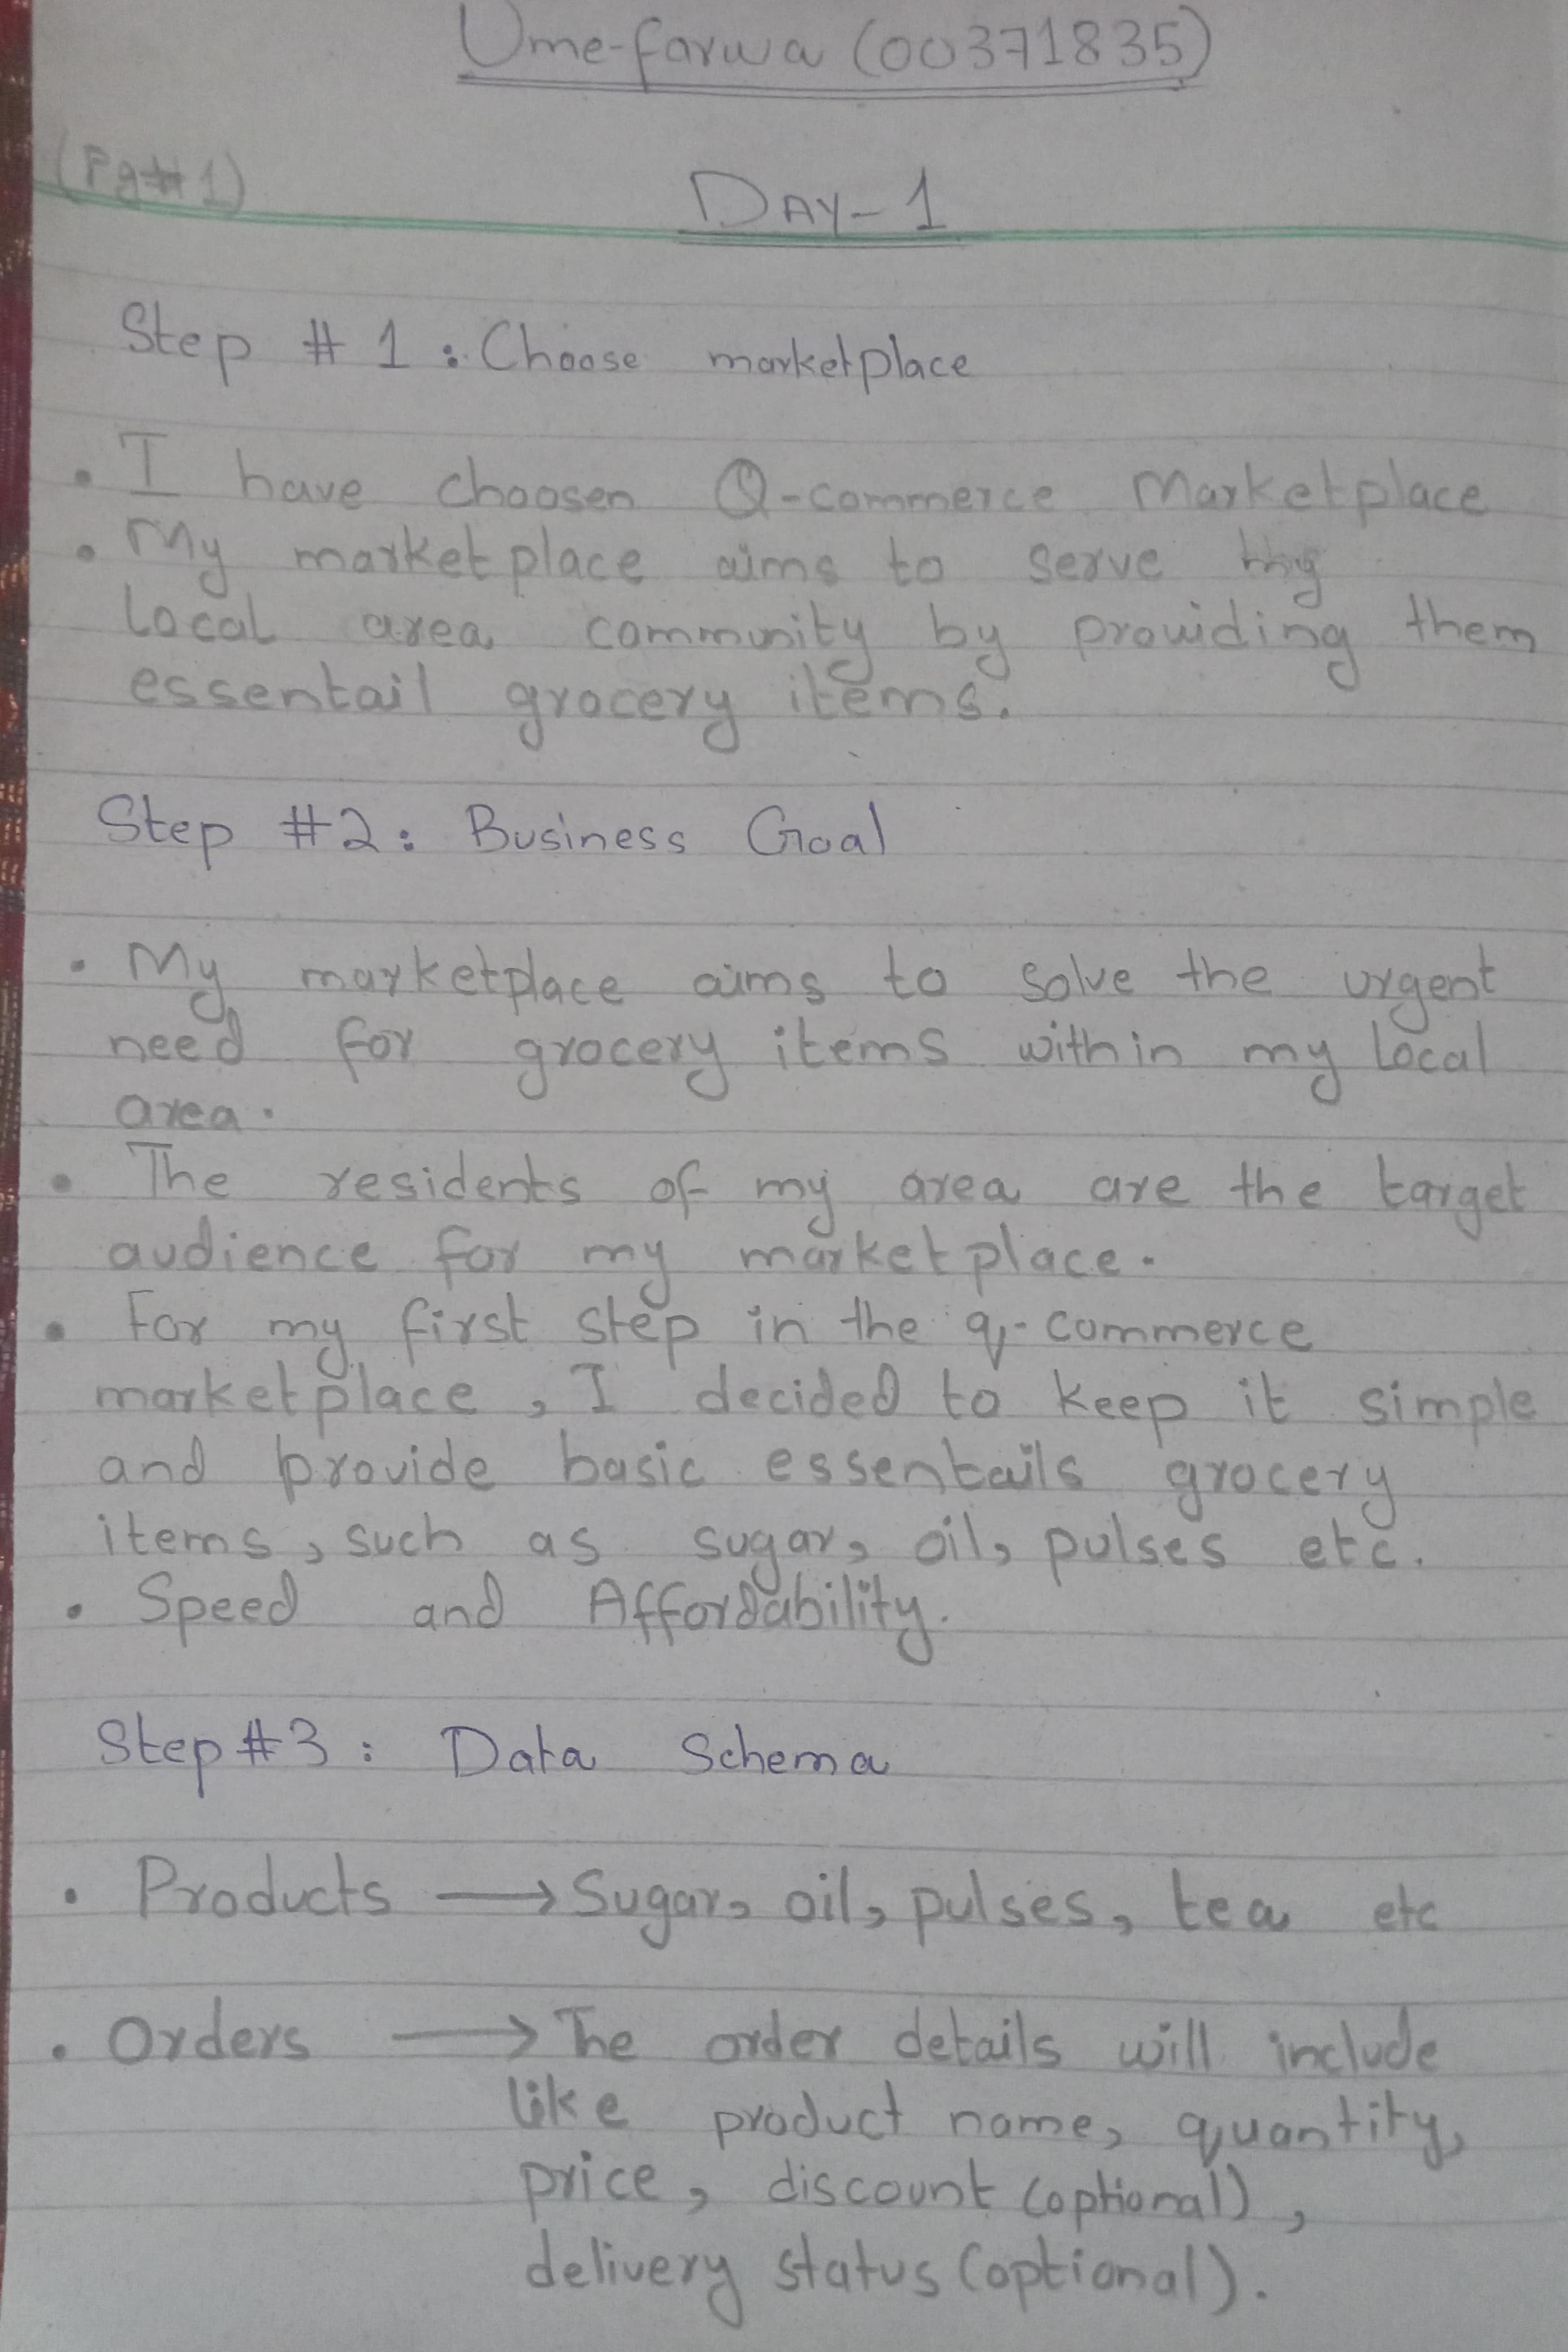 Ume-farwa (00371835)
(Pg#1)
DAY-1
Step # 1 : Choose marketplace
• I have choosen Q-commerce Marketplace
• My marketplace aims to serve my
local area community by providing them
essentail grocery items.
Step #2: Business Goal
• My marketplace aims to solve the urgent
need for grocery items within my local
area.
• The residents of my area are the target
audience for my marketplace.
• For my first step in the q-commerce
marketplace, I decided to keep it simple
and provide basic essentails grocery
items, such as sugar, oil, pulses etc.
• Speed and Affordability.
Step #3 : Data Schema
• Products → Sugar, oil, pulses, tea etc
• Orders → The order details will include
like product name, quantity,
price, discount (optional),
delivery status (optional).